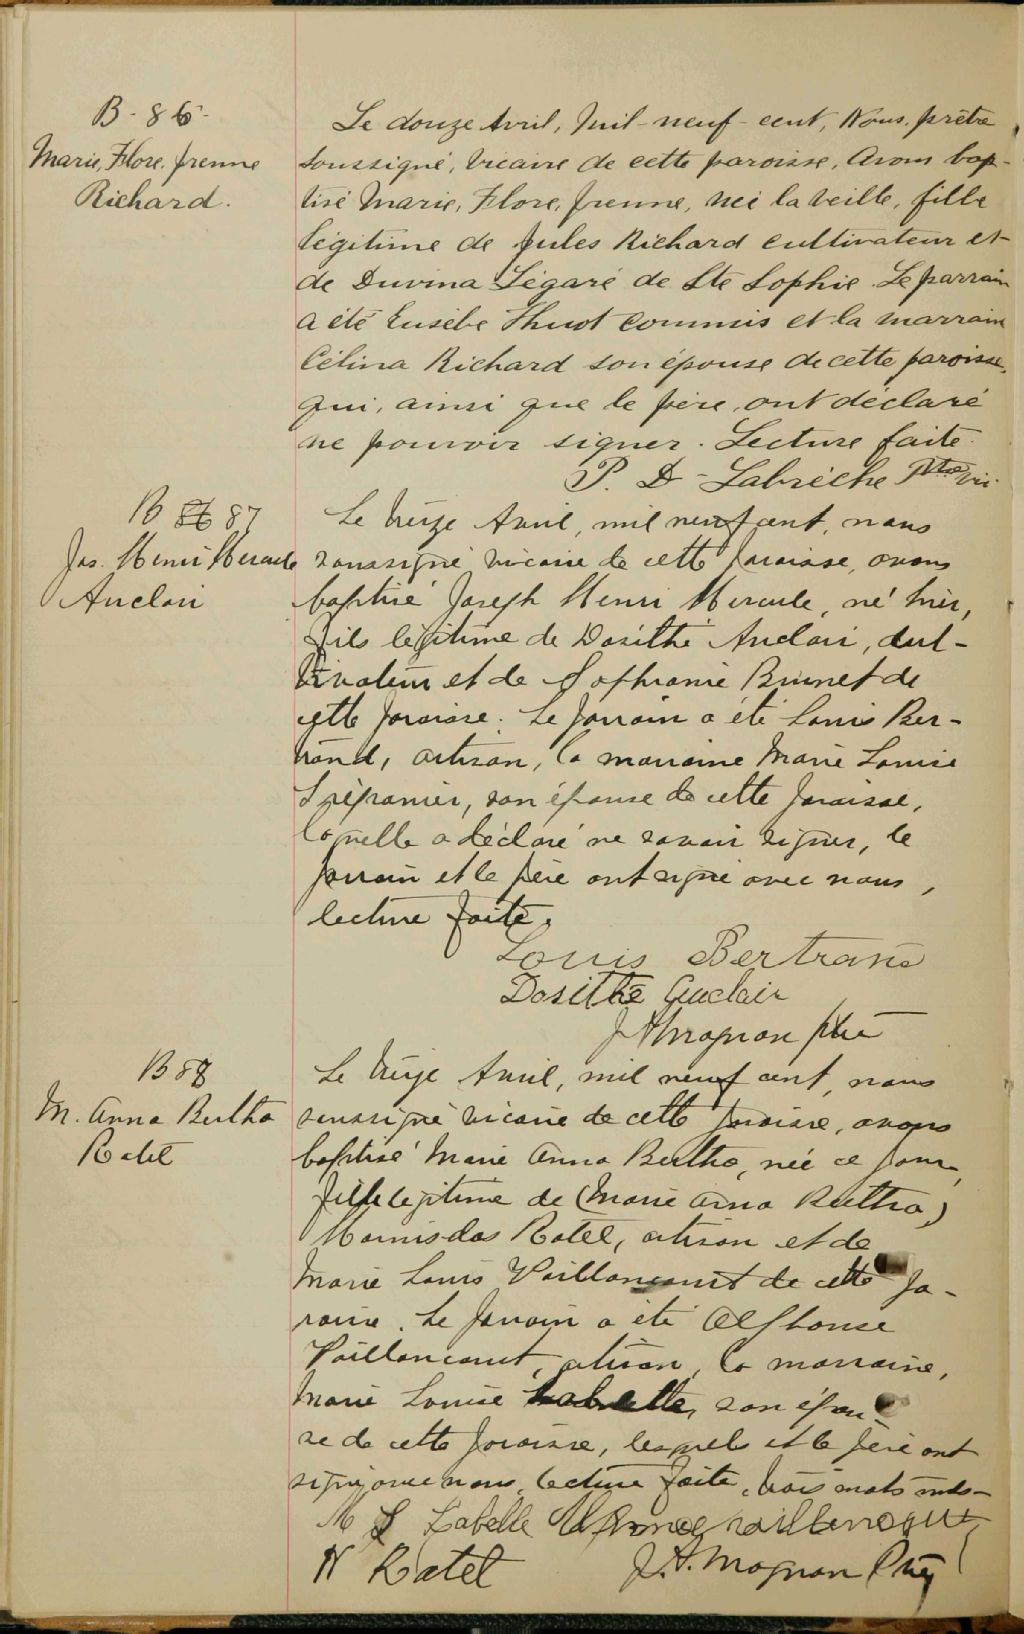 B-86
Marie, Flore, Irenne
Richard.
Le douze Avril, mil-neuf-cent, Nous, prêtre
soussigné, Vicaire de cette paroisse, Avons bap-
tisé Marie, Flore, Irenne, née la veille, fille
légitime de Jules Richard cultivateur et
de Duvina Légaré de Ste Sophie. Le parrain
a été Eusèbe Thuot commis et la marraine
Célina Richard son épouse de cette paroisse,
qui, ainsi que le père, ont déclaré
ne pouvoir signer. Lecture faite.
P. D-Labrèche Ptre vic.
B 86 87
Jos. Henri Hercule
Auclair
Le treize Avril, mil neuf cent, nous
soussigné vicaire de cette Paroisse, avons
baptisé Joseph Henri Hercule, né hier,
fils légitime de Dosithé Auclair, cul-
tivateur et de Sophranie Brunet de
cette Paroisse. Le parrain a été Louis Ber-
trand, artisan, la marraine Marie Louise
Trépanier, son épouse de cette Paroisse,
laquelle a déclaré ne savoir signer, le
parrain et le père ont signé avec nous,
lecture faite.
Louis Bertrand
Dosithé Auclair
J A Magnan ptre
B 88
M. Anna Bertha
Ratel
Le treize Avril, mil neuf cent, nous
soussigné vicaire de cette Paroisse, avons
baptisé Marie Anna Bertha, née ce jour,
fille légitime de (Marie Anna Bertha)
Hormisdas Ratel, artisan et de
Marie Louis Vaillancourt de cette Pa-
roisse. Le parrain a été Alphonse
Vaillancourt, artisan, la marraine,
Marie Louise Labelle, son épou-
se de cette Paroisse, lesquels et le père ont
signé avec nous, lecture faite, trois mots nuls-
M L Labelle Alphonse vaillancourt
H Ratel J. A. Magnan Ptre